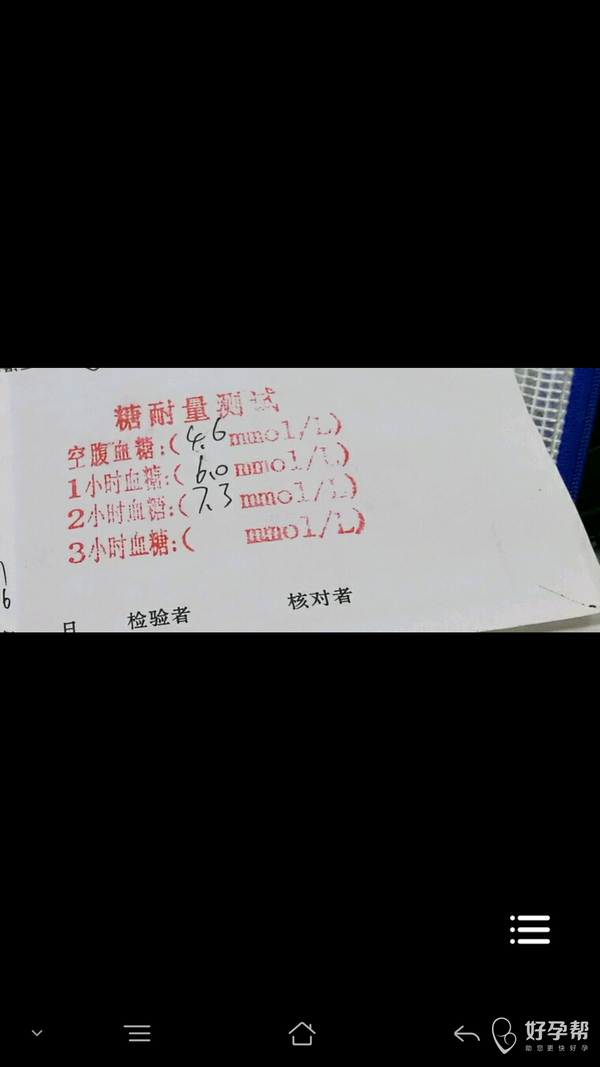 糖耐量测试
空腹血糖:( 4.6 mmol/L)
1小时血糖:( 6.0 mmol/L)
2小时血糖:( 7.3 mmol/L)
3小时血糖:( mmol/L)
6
日 检验者 核对者
好孕帮
助您更快好孕